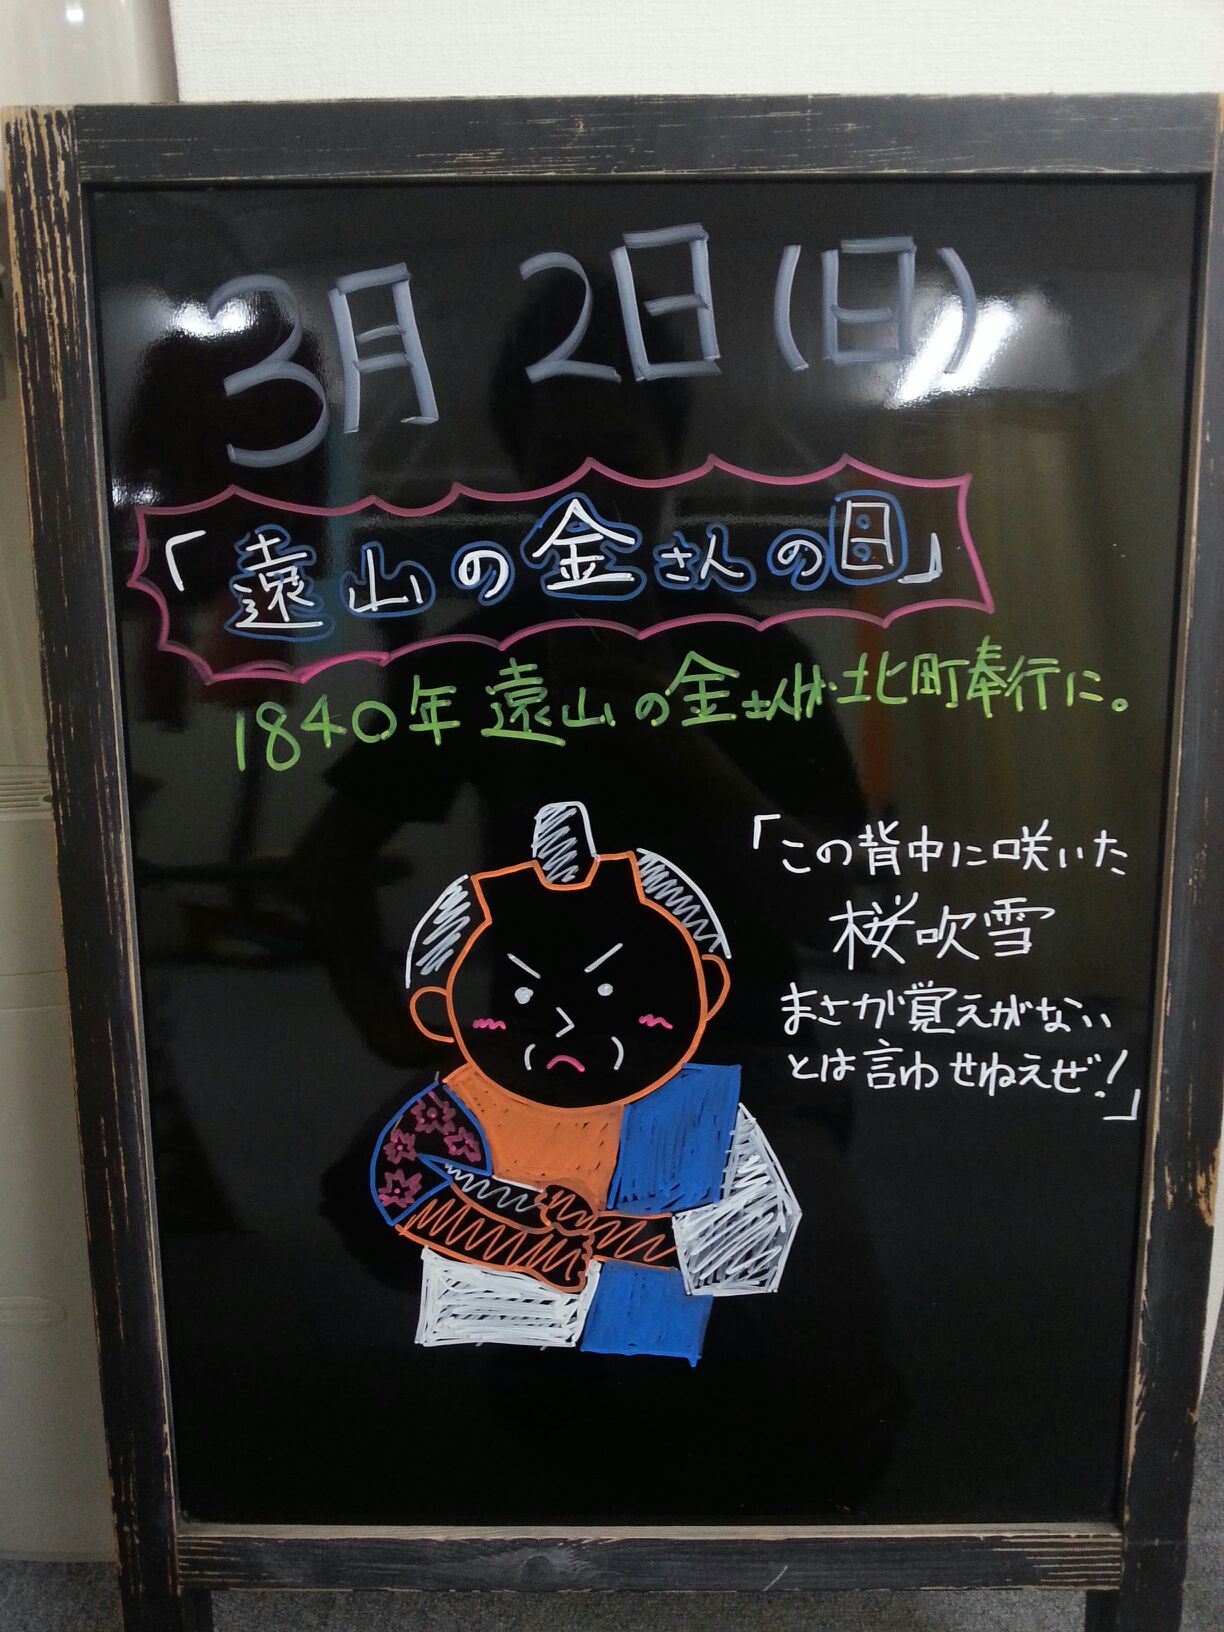 3月 2日(日)
「遠山の金さんの日」
1840年 遠山の金さんが北町奉行に。
「この背中に咲いた
桜吹雪
まさか覚えがない
とは言わせねえぜ!」